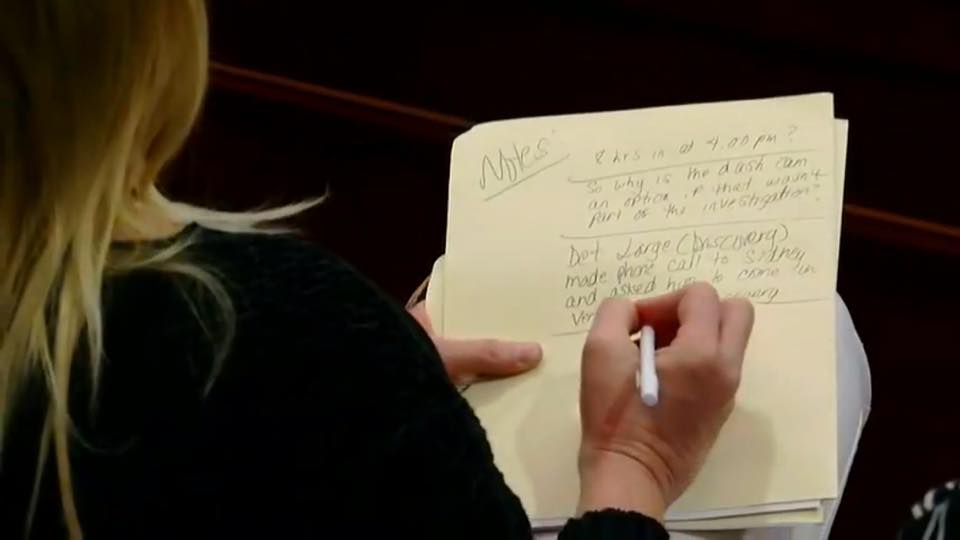 Notes
8 hrs in at 4.00 pm?
So why is the dash cam
an option if that wasn't
part of the investigation?
Det Large (Discovery)
made phone call to Sidney
and asked him to come in